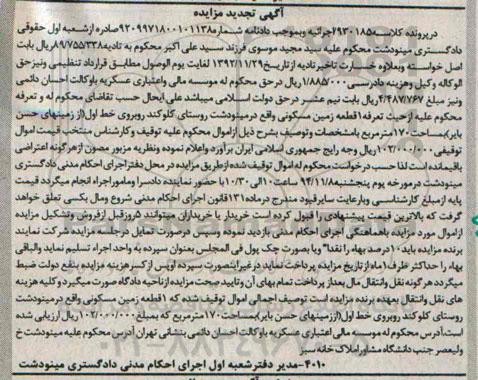 آگهی تجدید مزایده
درپرونده کلاسه ۷۹۳۰۱۸۵اجرائیه وبموجب دادنامه شماره ۹۲۰۹۹۷۱۸۰۰۱۰۱۱۳۸صادره ازشعبه اول حقوقی
دادگستری مینودشت محکوم علیه سید مجید موسوی فرزند سید علی اکبر محکوم به تادیه ۸۹/۷۵۵/۳۳۸ریال بابت
اصل خواسته وبعلاوه خسارت تاخیرتادیه ازتاریخ ۱۳۹۲/۱۱/۲۹ لغایت یوم الوصول مطابق قرارداد تنظیمی ونیزحق
الوکاله وکیل وهزینه دادرسی ۱/۸۸۵/۰۰۰ریال در حق محکوم له موسسه مالی واعتباری عسکریه باوکالت احسان دائمی
ونیز مبلغ ۴/۴۸۷/۷۶۷ ریال بابت نیم عشر در حق دولت اسلامی میباشد علی ایحال حسب تقاضای محکوم له و تعرفه
محکوم علیه ازحیث تعرفه ۱قطعه زمین مسکونی واقع درمینودشت روستای کلوکند روبروی خط اول(از زمینهای حسن
بایر)بمساحت ۱۷۰مترمربع بامشخصات وتوصیف بشرح ذیل ازاموال محکوم علیه توقیف وکارشناس منتخب قیمت اموال
توقیفی ۱۰۲/۰۰۰/۰۰۰ریال وجه رایج جمهوری اسلامی ایران برآورد واعلام نموده ونظریه مزبور مصون ازهرگونه اعتراضی
باقیمانده است لذا حسب درخواست محکوم له اموال توقیف شده ازطریق مزایده در محل دفتراجرای احکام مدنی دادگستری
مینودشت درمورخه یوم پنجشنبه ۹۴/۱۱/۸ ساعت ۱۰الی ۱۰/۳۰با حضور نماینده دادسرا وماموراجراء انجام میگردد قیمت
پایه ازمبلغ کارشناسی وبارعایت سایرقیود مندرج درماده ۱۳۱قانون اجرای احکام مدنی شروع ومال بکسی تعلق خواهد
گرفت که بالاترین قیمت پیشنهادی را قبول کرده است خریدار یا خریداران میتوانند ۵روزقبل ازفروش وتشکیل مزایده
ازاموال مورد مزایده باهماهنگی اجرای احکام مدنی بازدید نموده وبررسی درصورت تمایل درجلسه مزایده شرکت نمایند
برنده مزایده باید۱۰درصد بهاء را نقدا" ویا بصورت چک پول فی المجلس بعنوان سپرده به واحد اجراء تسلیم نماید والباقی
بهاء را حداکثر ظرف۱ماه ازتاریخ مزایده پرداخت نماید درغیراینصورت سپرده اوپس ازکسر هزینه مزایده بنفع دولت ضبط
میگردد هرگونه نقل وانتقال مال بعداز پرداخت تمام بهای آن وتایید صحت مزایده ازناحیه دادگاه صورت میگیرد و کلیه هزینه
های نقل وانتقال بعهده برنده مزایده است توصیف اجمالی اموال توقیف شده که ۱قطعه زمین مسکونی واقع درمینودشت
روستای کلوکند روبروی خط اول(اززمینهای حسن بایر)بمساحت ۱۷۰مترمربع که بمبلغ ۱۰۲/۰۰۰/۰۰۰ریال ارزیابی شده
است،آدرس محکوم له موسسه مالی اعتباری عسکریه باوکالت احسان دائمی بنشانی تهران آدرس محکوم علیه مینودشت خ
ولیعصر جنب دانشگاه مشاور املاک خانه سبز
۴۰۱۰-مدیر دفترشعبه اول اجرای احکام مدنی دادگستری مینودشت